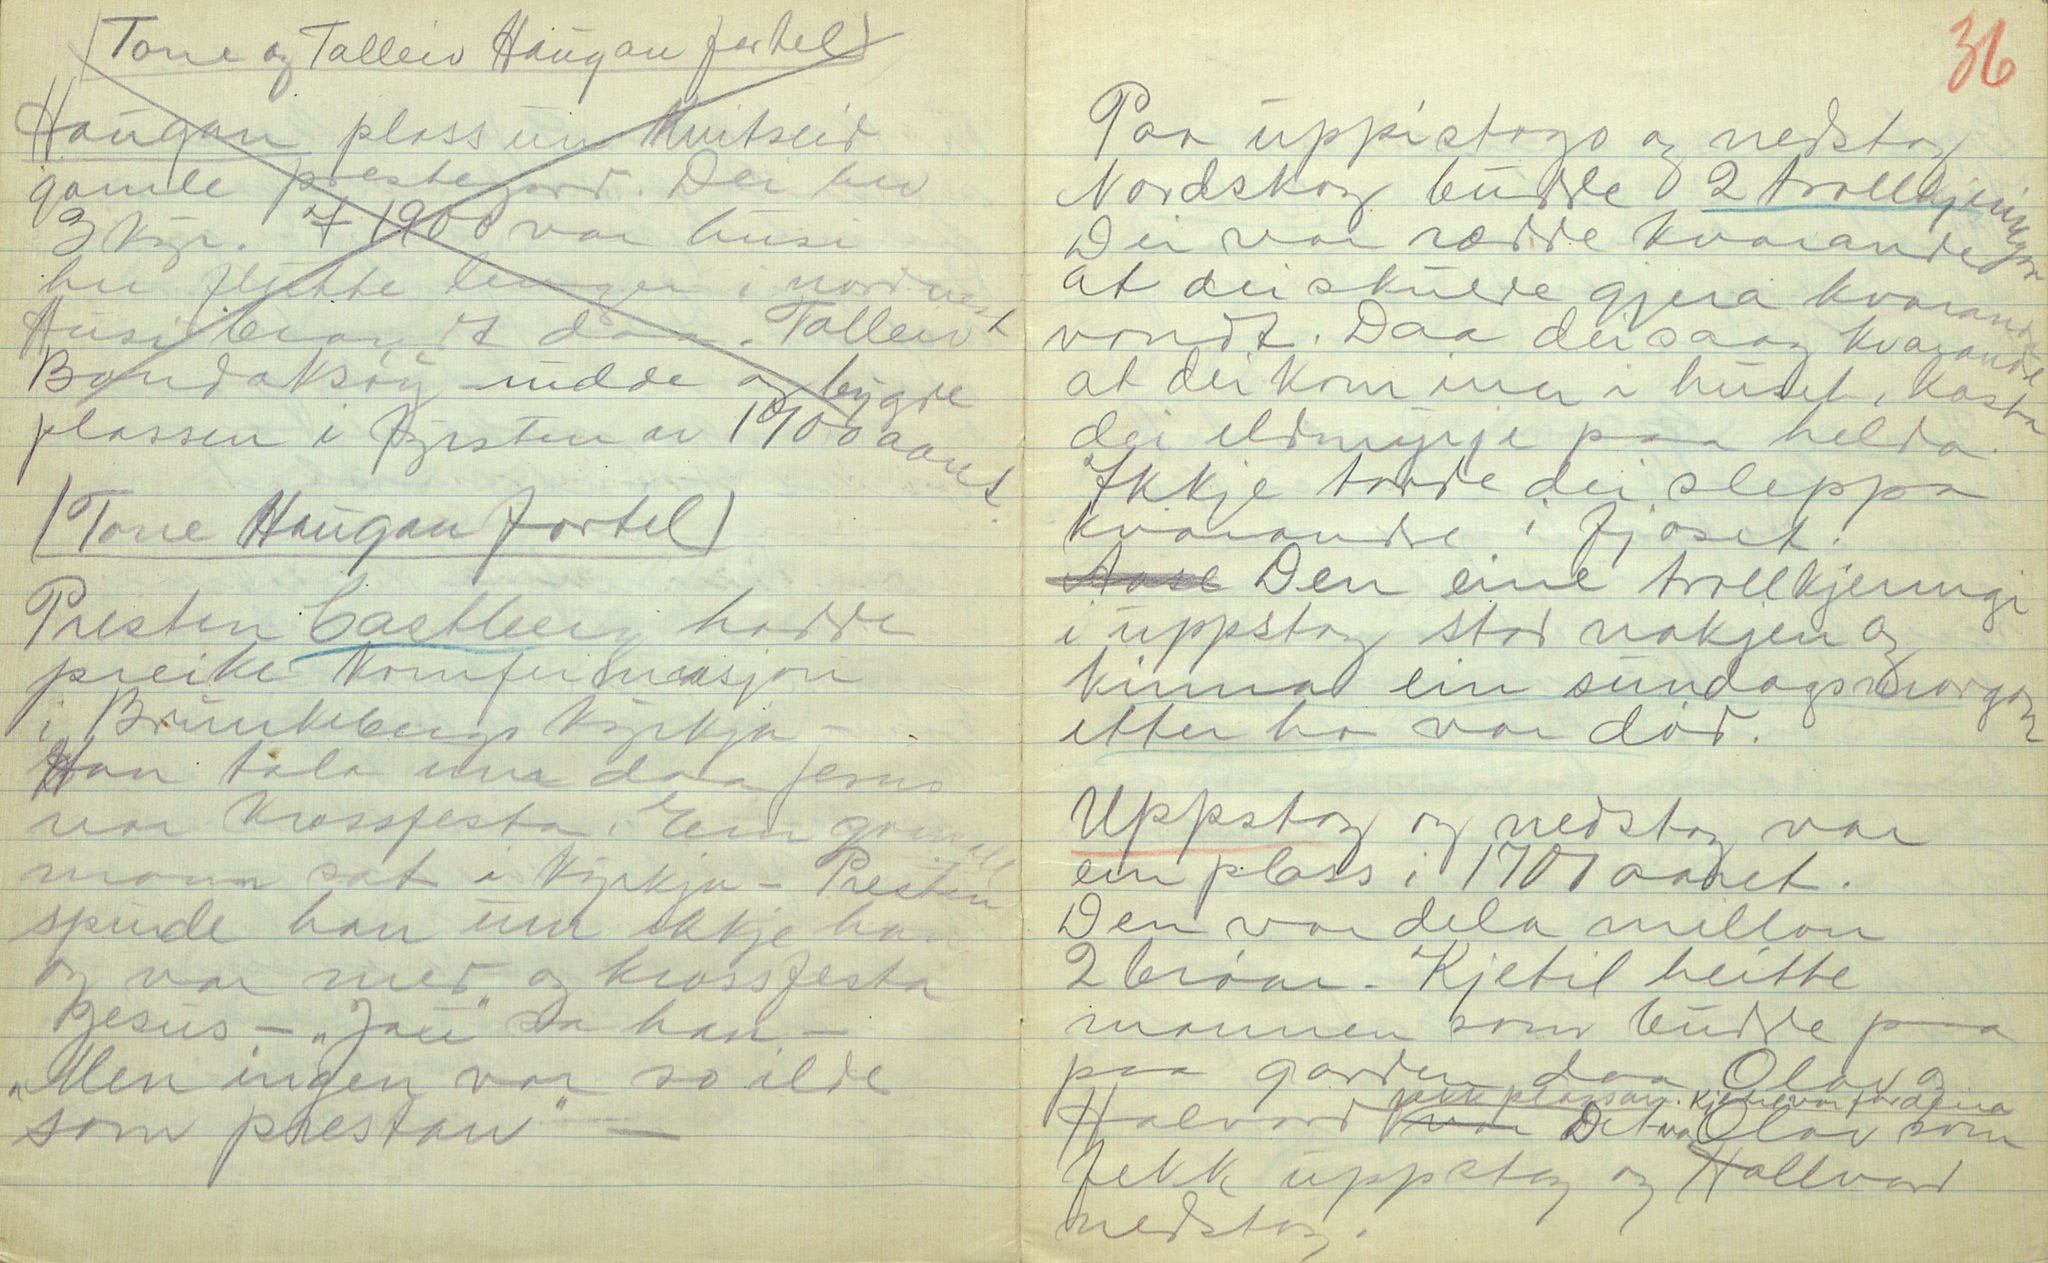 (Tone og Talleiv Haugan fortel)
Haugan plass um Kvitseid
gamle prestegard. Dei hev
3 kyr. I 1900 var husi
her flytte lenger i nordvest
Husi brandt daa. Talleiv
Bondaksøy rudde og bygde
plassen i fyrsten av 1900 aaret.
(Tone Haugan fortel)
Presten Castberg hadde
preike Komfermasjon
i Brunkebergs kyrkja -
Han tala um daa Jesus
var krossfesta. Ein gamall
mann sat i kyrkja - Presten
spurde han um ikkje han
og var med og krossfesta
Jesus - "Jau" sa han -
"Men ingen var so ilde
som prestan" -
36
Paa uppistogo og nedstog
Nordskog budde 2 trollkjeringar
Dei var rædde kvarandre
at dei skulde gjera kvarandre
vondt. Daa dei saag kvarandre
at dei kom inn i huset, kasta
dei eldmyrje paa helda.
Ikkje torde dei sleppa
kvarandre i fjøset.
Den eine trollkjeringi
i uppstog stod nakjen og
kinna ein sundagsmorgon
etter ho var död.
Uppstog og nedstog var
ein plass i 1700 aaret.
Den var dela millom
2 bröar. Kjetil heitte
mannen som budde paa
paa garden daa Olav og
Halvard fekk plassan. Kjetil var far deira
var Det var Olav som
fekk uppstog og Hallvard
nedstog.